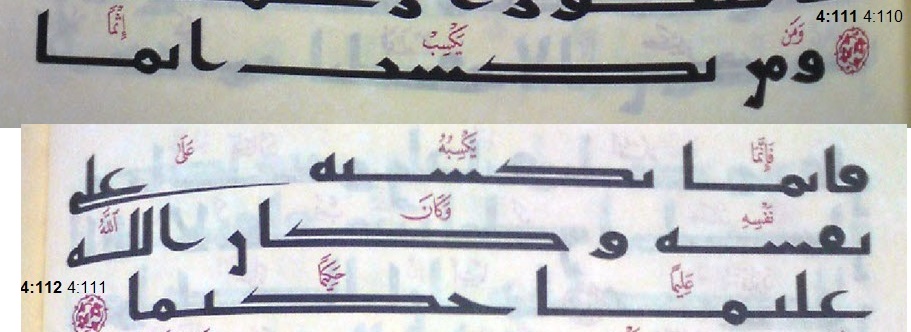 4:111 4:110
وَمَن يَكْسِبْ إِثْمًا
ومن يكسب اثما
فَإِنَّمَا يَكْسِبُهُ عَلَىٰ
فانما يكسبه على
نَفْسِهِ وَكَانَ اللَّهُ
نفسه وكان الله
عَلِيمًا حَكِيمًا
عليما حكيما
4:112 4:111